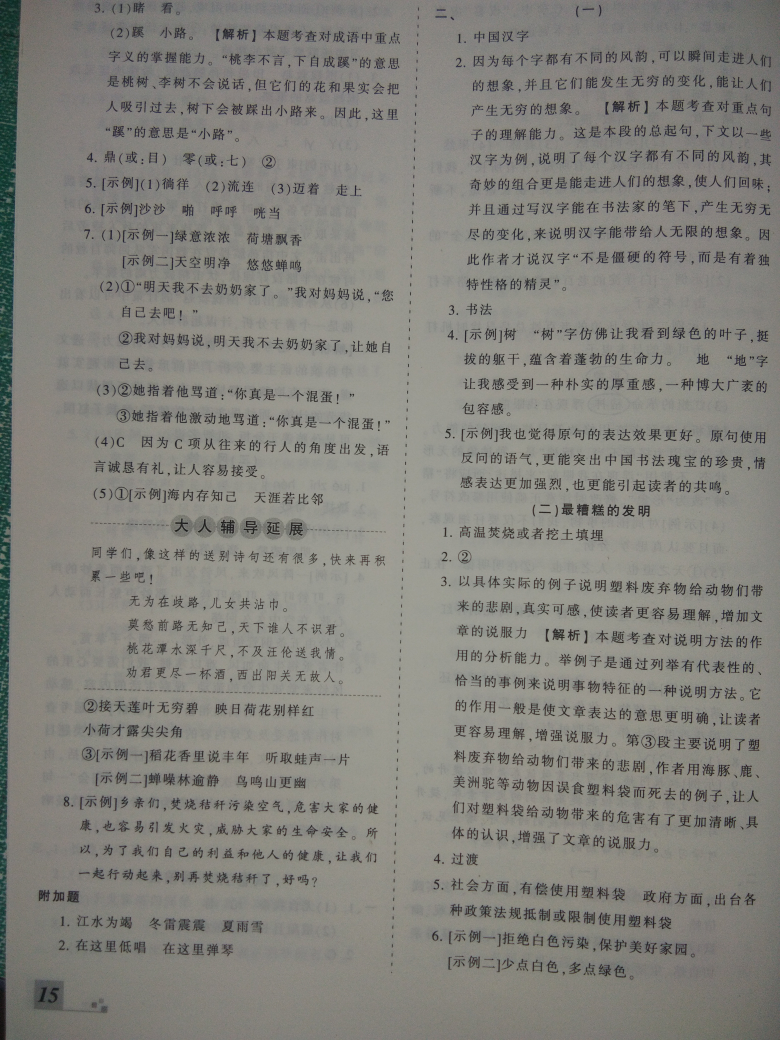 3. (1)睹　看。
(2)蹊　小路。【解析】本题考查对成语中重点
字义的掌握能力。“桃李不言,下自成蹊”的意思
是桃树、李树不会说话,但它们的花和果实会把
人吸引过去,树下会被踩出小路来。因此,这里
“蹊”的意思是“小路”。
4. 鼎(或:目)　零(或:七)　②
5. [示例](1)徜徉　(2)流连　(3)迈着　走上
6. [示例]沙沙　啪　呼呼　咣当
7. (1)[示例一]绿意浓浓　荷塘飘香
[示例二]天空明净　悠悠蝉鸣
(2)①“明天我不去奶奶家了。”我对妈妈说,“您
自己去吧！”
②我对妈妈说,明天我不去奶奶家了,让她自
己去。
(3)②她指着他骂道:“你真是一个混蛋！”
③她指着他激动地骂道:“你真是一个混蛋！”
(4)C　因为C项从往来的行人的角度出发,语
言诚恳有礼,让人容易接受。
(5)①[示例]海内存知己　天涯若比邻
大人辅导延展
同学们,像这样的送别诗句还有很多,快来再积
累一些吧！
无为在歧路,儿女共沾巾。
莫愁前路无知己,天下谁人不识君。
桃花潭水深千尺,不及汪伦送我情。
劝君更尽一杯酒,西出阳关无故人。
②接天莲叶无穷碧　映日荷花别样红
小荷才露尖尖角
③[示例一]稻花香里说丰年　听取蛙声一片
[示例二]蝉噪林逾静　鸟鸣山更幽
8. [示例]乡亲们,焚烧秸秆污染空气,危害大家的健
康,也容易引发火灾,威胁大家的生命安全。所
以,为了我们自己的利益和他人的健康,让我们
一起行动起来,别再焚烧秸秆了,好吗?
附加题
1. 江水为竭　冬雷震震　夏雨雪
2. 在这里低唱　在这里弹琴
15
二、　(一)
1. 中国汉字
2. 因为每个字都有不同的风韵,可以瞬间走进人们
的想象,并且它们能发生无穷的变化,能让人们
产生无穷的想象。【解析】本题考查对重点句
子的理解能力。这是本段的总起句,下文以一些
汉字为例,说明了每个汉字都有不同的风韵,其
奇妙的组合更是能走进人们的想象,使人们回味;
并且通过写汉字能在书法家的笔下,产生无穷无
尽的变化,来说明汉字能带给人无限的想象。因
此作者才说汉字“不是僵硬的符号,而是有着独
特性格的精灵”。
3. 书法
4. [示例]树　“树”字仿佛让我看到绿色的叶子,挺
拔的躯干,蕴含着蓬勃的生命力。　地　“地”字
让我感受到一种朴实的厚重感,一种博大广袤的
包容感。
5. [示例]我也觉得原句的表达效果更好。原句使用
反问的语气,更能突出中国书法瑰宝的珍贵,情
感表达更加强烈,也更能引起读者的共鸣。
(二)最糟糕的发明
1. 高温焚烧或者挖土填埋
2. ②
3. 以具体实际的例子说明塑料废弃物给动物们带
来的悲剧,真实可感,使读者更容易理解,增加文
章的说服力　【解析】本题考查对说明方法的作
用的分析能力。举例子是通过列举有代表性的、
恰当的事例来说明事物特征的一种说明方法。它
的作用一般是使文章表达的意思更明确,让读者
更容易理解,增强说服力。第③段主要说明了塑
料废弃物给动物们带来的悲剧,作者用海豚、鹿、
美洲驼等动物因误食塑料袋而死去的例子,让人
们对塑料袋给动物带来的危害有了更加清晰、具
体的认识,增强了文章的说服力。
4. 过渡
5. 社会方面,有偿使用塑料袋　政府方面,出台各
种政策法规抵制或限制使用塑料袋
6. [示例一]拒绝白色污染,保护美好家园。
[示例二]少点白色,多点绿色。